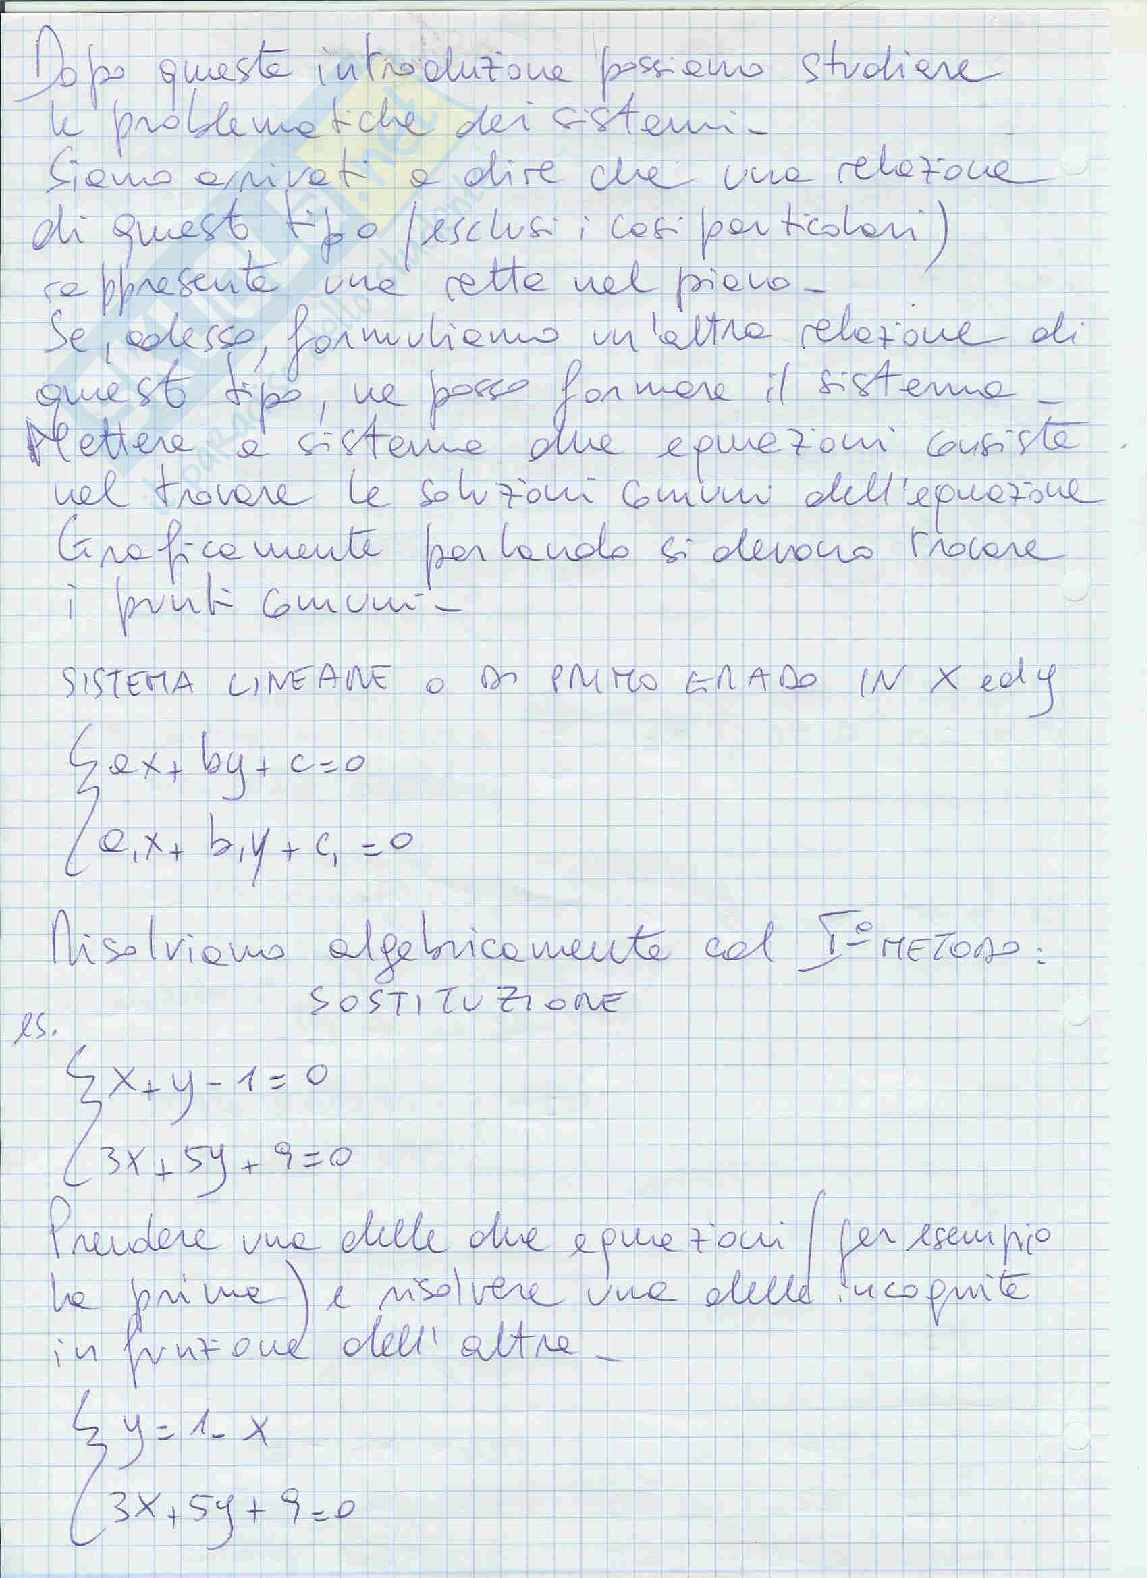 Dopo questa introduzione possiamo studiare
le problematiche dei sistemi-
Siamo arrivati a dire che una relazione
di questo tipo (esclusi i casi particolari)
rappresenta una retta nel piano-
Se, adesso, formuliamo un'altra relazione di
questo tipo, ne posso formare il sistema-
Mettere a sistema due equazioni consiste
nel trovare le soluzioni comuni dell'equazione
Graficamente parlando si devono trovare
i punti comuni-
SISTEMA LINEARE O DI PRIMO GRADO IN X ed y
{ ax + by + c = 0
a₁x + b₁y + c₁ = 0
Risolviamo algebricamente col I° METODO:
SOSTITUZIONE
es.
{ x + y - 1 = 0
3x + 5y + 9 = 0
Prendere una delle due equazioni (per esempio
la prima) e risolvere una delle incognite
in funzione dell'altra-
{ y = 1 - x
3x + 5y + 9 = 0